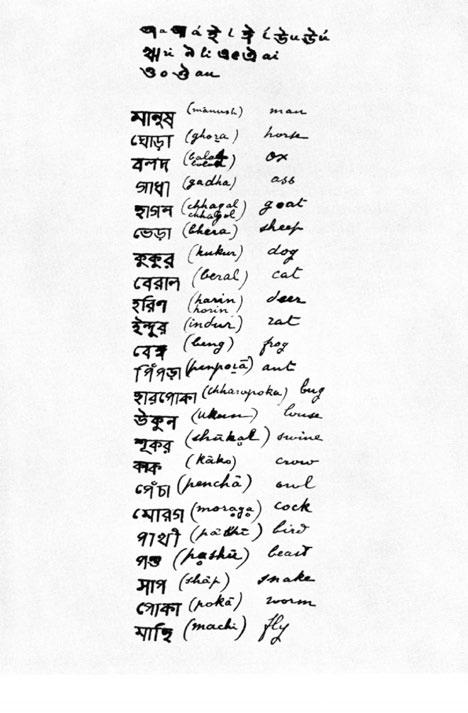 অ a আ á ই i ঈ í উ u ঊ ú
ঋ ri ঌ li এ e ঐ ai
ও o ঔ au
মানুষ (mānush) man
ঘোড়া (ghoṛa) horse
বলদ ox
গাধা (gadha) ass
ছাগল (chhagal chhagol) goat
ভেড়া (bhera) sheep
কুকুর (kukur) dog
বেরাল (beral) cat
হরিণ (harin horin) deer
ইন্দুর (indur) rat
বেঙ্গ (beng) frog
পিঁপড়া (penpoṛā) ant
ছারপোকা (chharopoka) bug
উকুন (ukun) louse
শূকর swine
কাক (kāko) crow
পেঁচা (penchā) owl
মোরগ (moraga) cock
পাখী bird
পশু (pashū) beast
সাপ (shāp) snake
পোকা (pokā) worm
মাছি (machi) fly